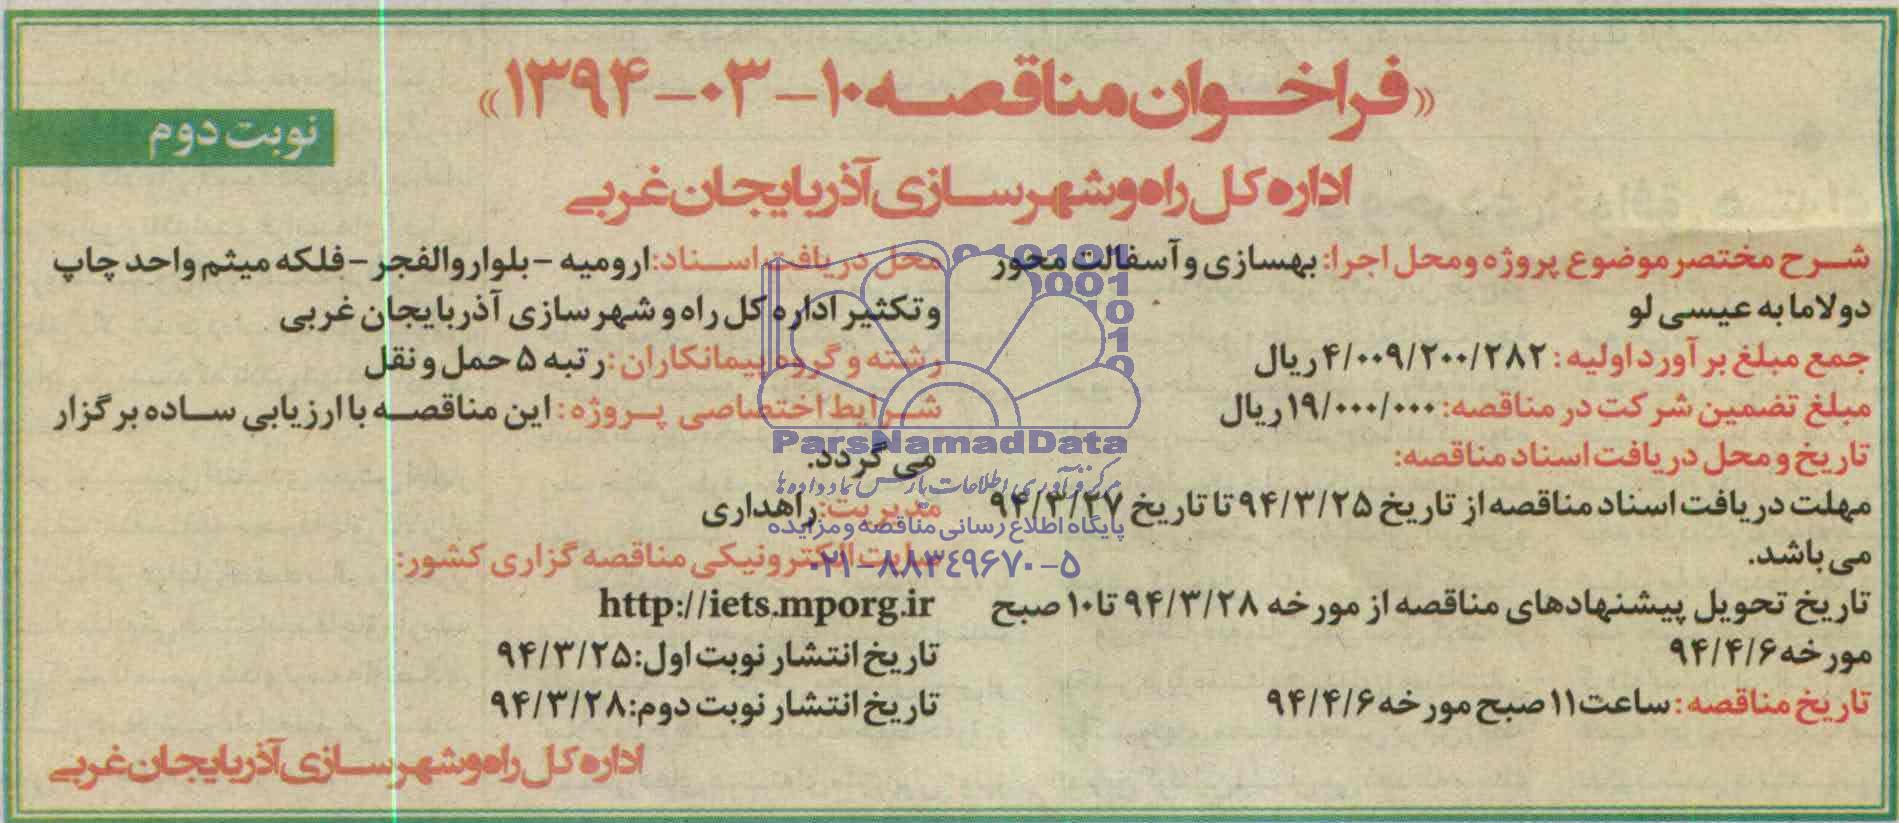 «فراخوان مناقصه ۱۰-۰۳-۱۳۹۴»
نوبت دوم
اداره کل راه و شهرسازی آذربایجان غربی
شرح مختصر موضوع پروژه و محل اجرا: بهسازی و آسفالت محور
دولاما به عیسی لو
جمع مبلغ برآورد اولیه: ۴/۰۰۹/۲۰۰/۲۸۲ ریال
مبلغ تضمین شرکت در مناقصه: ۱۹/۰۰۰/۰۰۰ ریال
تاریخ و محل دریافت اسناد مناقصه:
مهلت دریافت اسناد مناقصه از تاریخ ۹۴/۳/۲۵ تا تاریخ ۹۴/۳/۲۷
می باشد.
تاریخ تحویل پیشنهادهای مناقصه از مورخه ۹۴/۳/۲۸ تا ۱۰ صبح
مورخه ۹۴/۴/۶
تاریخ مناقصه: ساعت ۱۱ صبح مورخه ۹۴/۴/۶
محل دریافت اسناد: ارومیه - بلوار والفجر - فلکه میثم واحد چاپ
و تکثیر اداره کل راه و شهرسازی آذربایجان غربی
رشته و گروه پیمانکاران: رتبه ۵ حمل و نقل
شرایط اختصاصی پروژه: این مناقصه با ارزیابی ساده برگزار
می گردد.
مدیریت: راهداری
سایت الکترونیکی مناقصه گزاری کشور:
http://iets.mporg.ir
تاریخ انتشار نوبت اول: ۹۴/۳/۲۵
تاریخ انتشار نوبت دوم: ۹۴/۳/۲۸
اداره کل راه و شهرسازی آذربایجان غربی
ParsNamadData
مرکز فرآوری اطلاعات پارس نماد داده ها
پایگاه اطلاع رسانی مناقصه و مزایده
۰۲۱-۸۸۳۴۹۶۷۰-۵